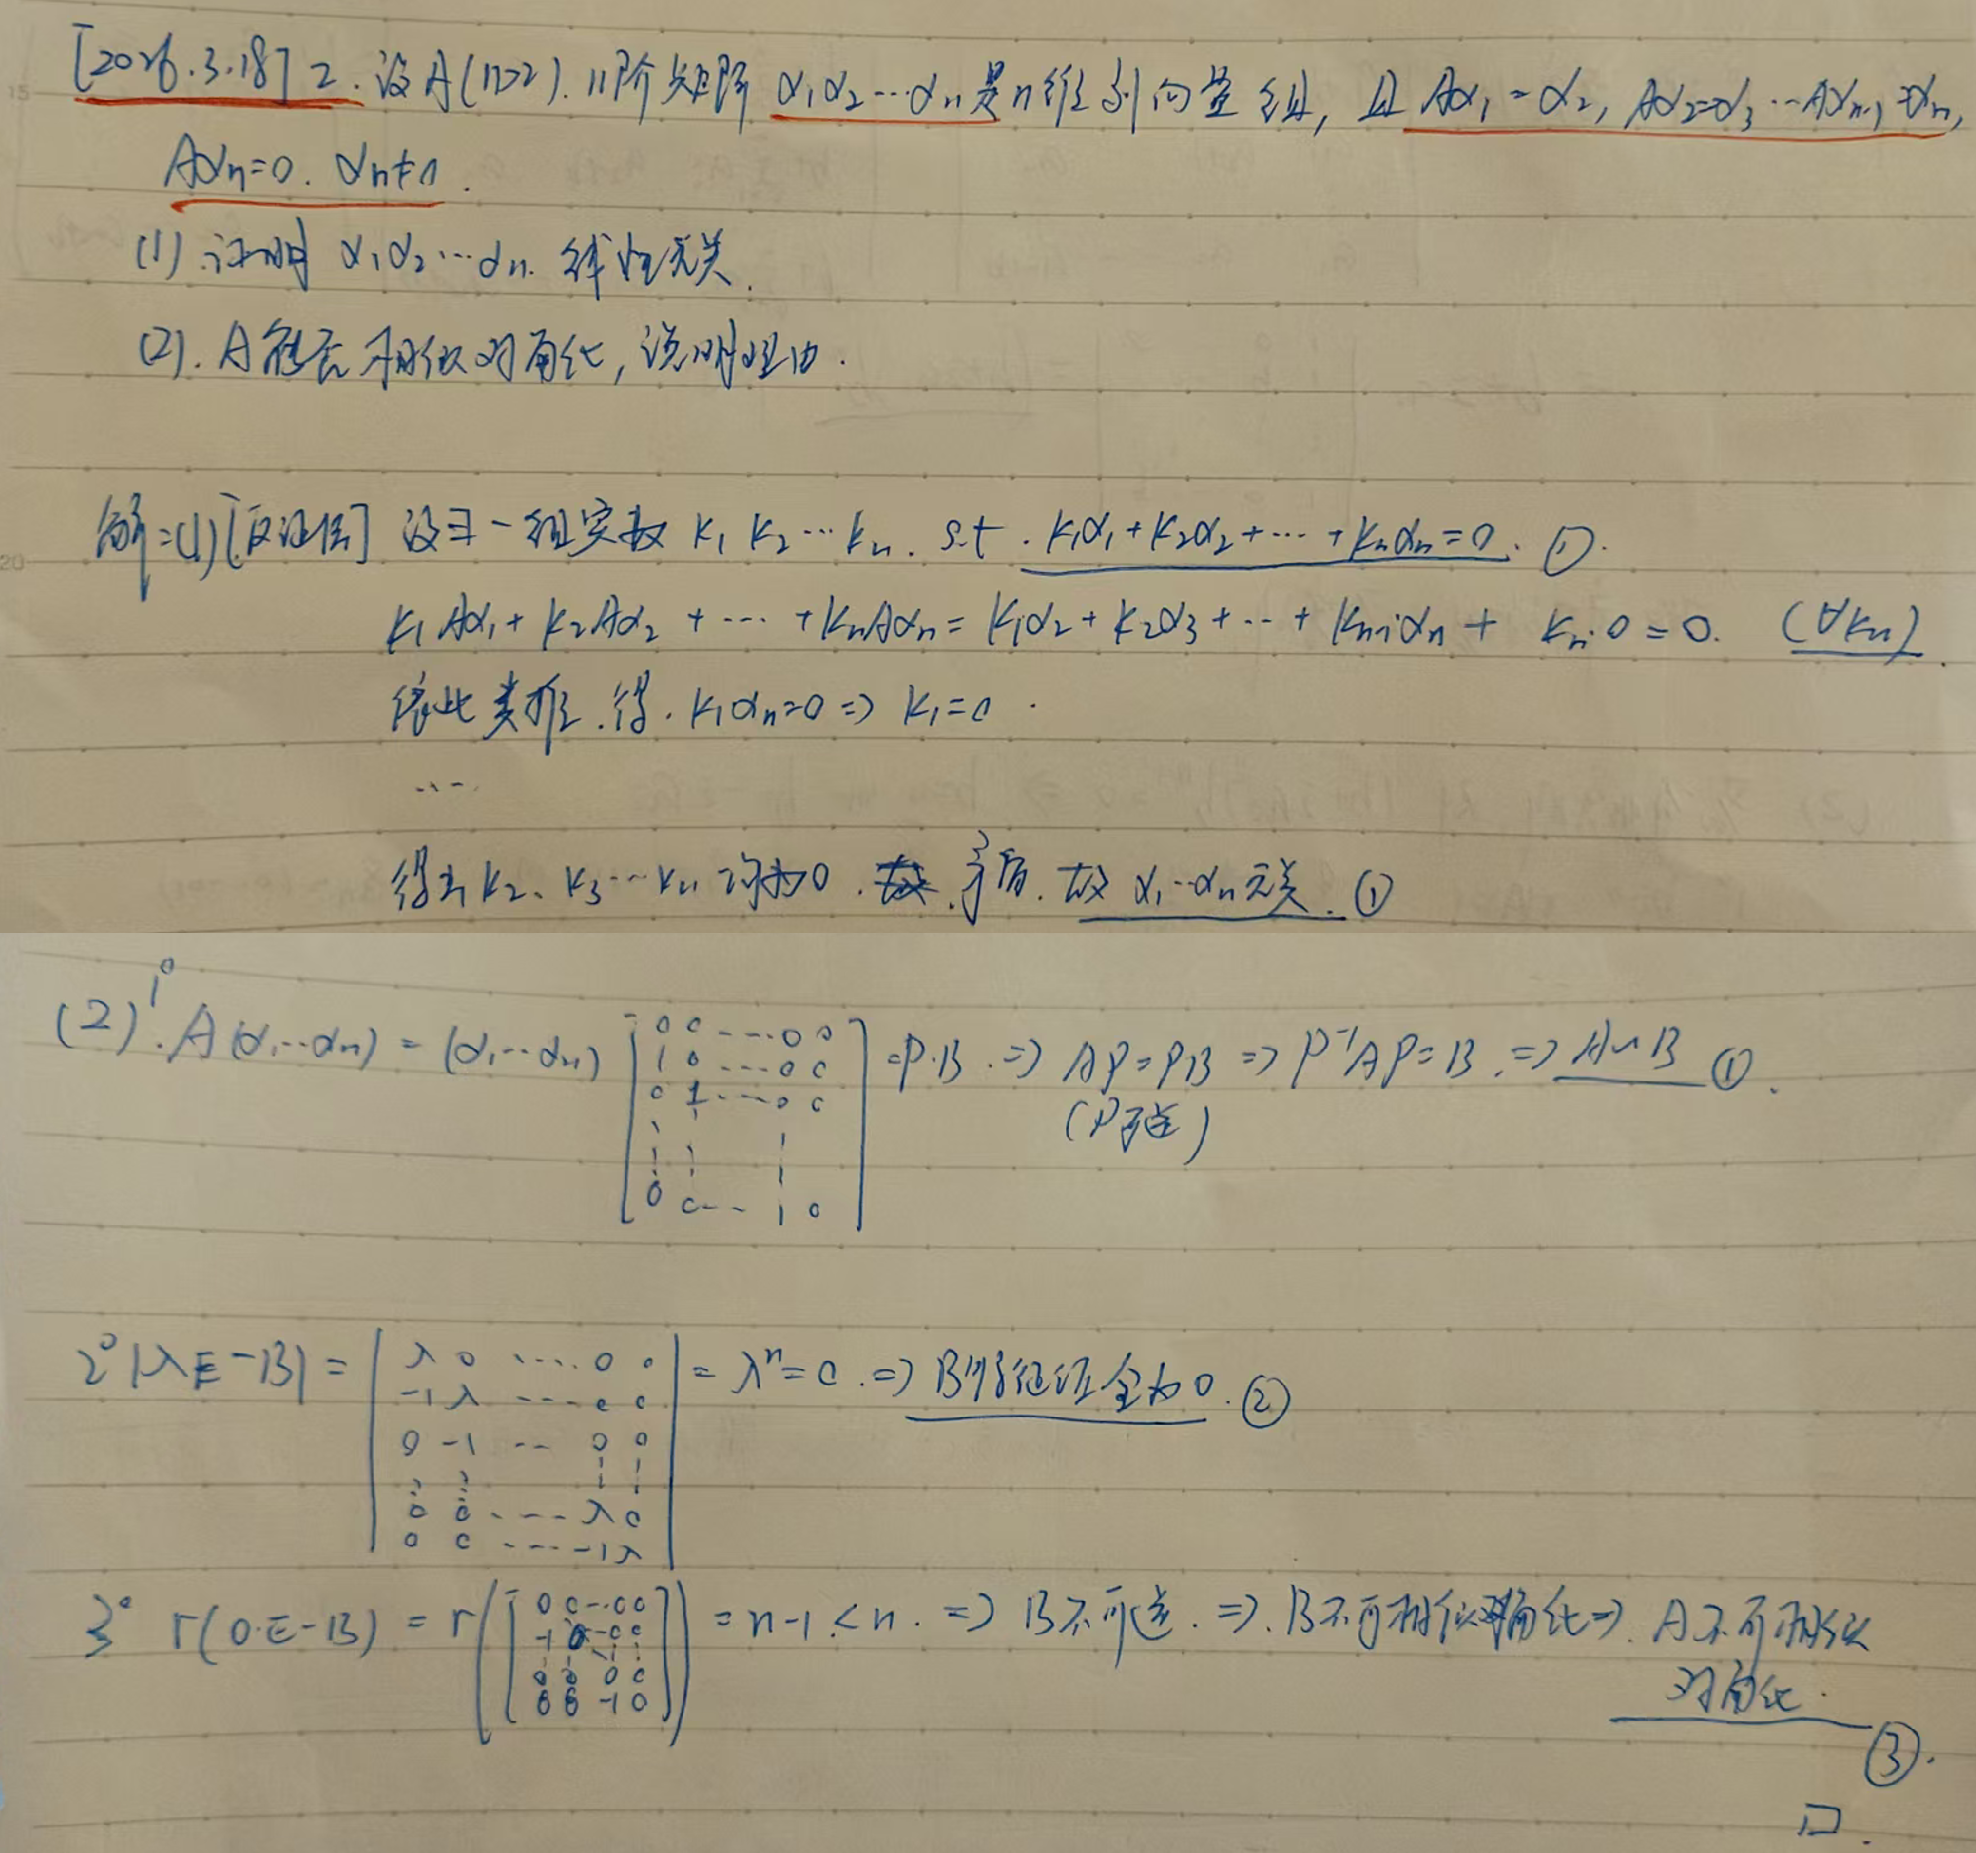 [2026.3.18] 2. 设A(n>2).n阶矩阵 α₁α₂…αn是n维列向量组, 且 Aα₁=α₂, Aα₂=α₃…Aαn-1=αn,
Aαn=0. αn≠0.
(1) 证明 α₁α₂…αn. 线性无关.
(2). A能否相似对角化, 说明理由.
解:(1)[反证法] 设∃一组实数 k₁ k₂…kn. s.t. k₁α₁+k₂α₂+…+knαn=0. ①.
k₁Aα₁+k₂Aα₂+…+knAαn=k₁α₂+k₂α₃+…+kn-1αn+kn·0=0. (∀kn).
依此类推.得.k₁αn=0⇒k₁=0.
….
得出k₂、k₃…kn均为0. 矛盾.故α₁…αn无关.①
(2) 1°. A(α₁…αn)=(α₁…αn) [0 0 …. 0 0
1 0 … 0 0
0 1 … 0 0
⋮
0 0 … 1 0] =P·B.⇒AP=PB⇒P⁻¹AP=B.⇒A∼B ①.
(P可逆)
2° |λE-B|= |λ 0 …. 0 0
-1 λ … 0 0
0 -1 … 0 0
⋮
0 0 … λ 0
0 0 … -1 λ| =λⁿ=0.⇒B特征值全为0.②
3° r(0·E-B)=r([0 0 … 0 0
-1 0 … 0 0
0 0 0 0
0 0 -1 0])=n-1<n.⇒B不可逆.⇒.B不可相似对角化⇒.A不可相似
对角化.
③.
□.